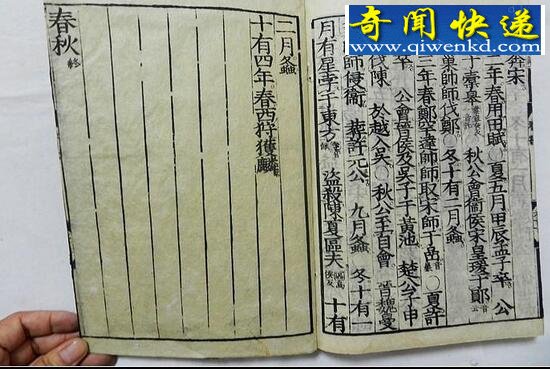 奇闻快递
www.qiwenkd.com
奔宋
二年春用田賦 夏五月甲辰孟子卒 公
于橐皋 秋公會衛侯宋皇瑗于鄖
巢帥師伐鄭 冬十有二月螽
三年春鄭罕達帥師取宋師于嵒 夏許
卒 公會晉侯及吳子于黃池 楚公子申
伐陳 於越入吳 秋公至自會 晉魏曼
師侵衛 葬許元公 九月螽 冬十有一
月有星孛于東方 盜殺陳夏區夫 十有
二月螽
十有四年春西狩獲麟
春秋 終